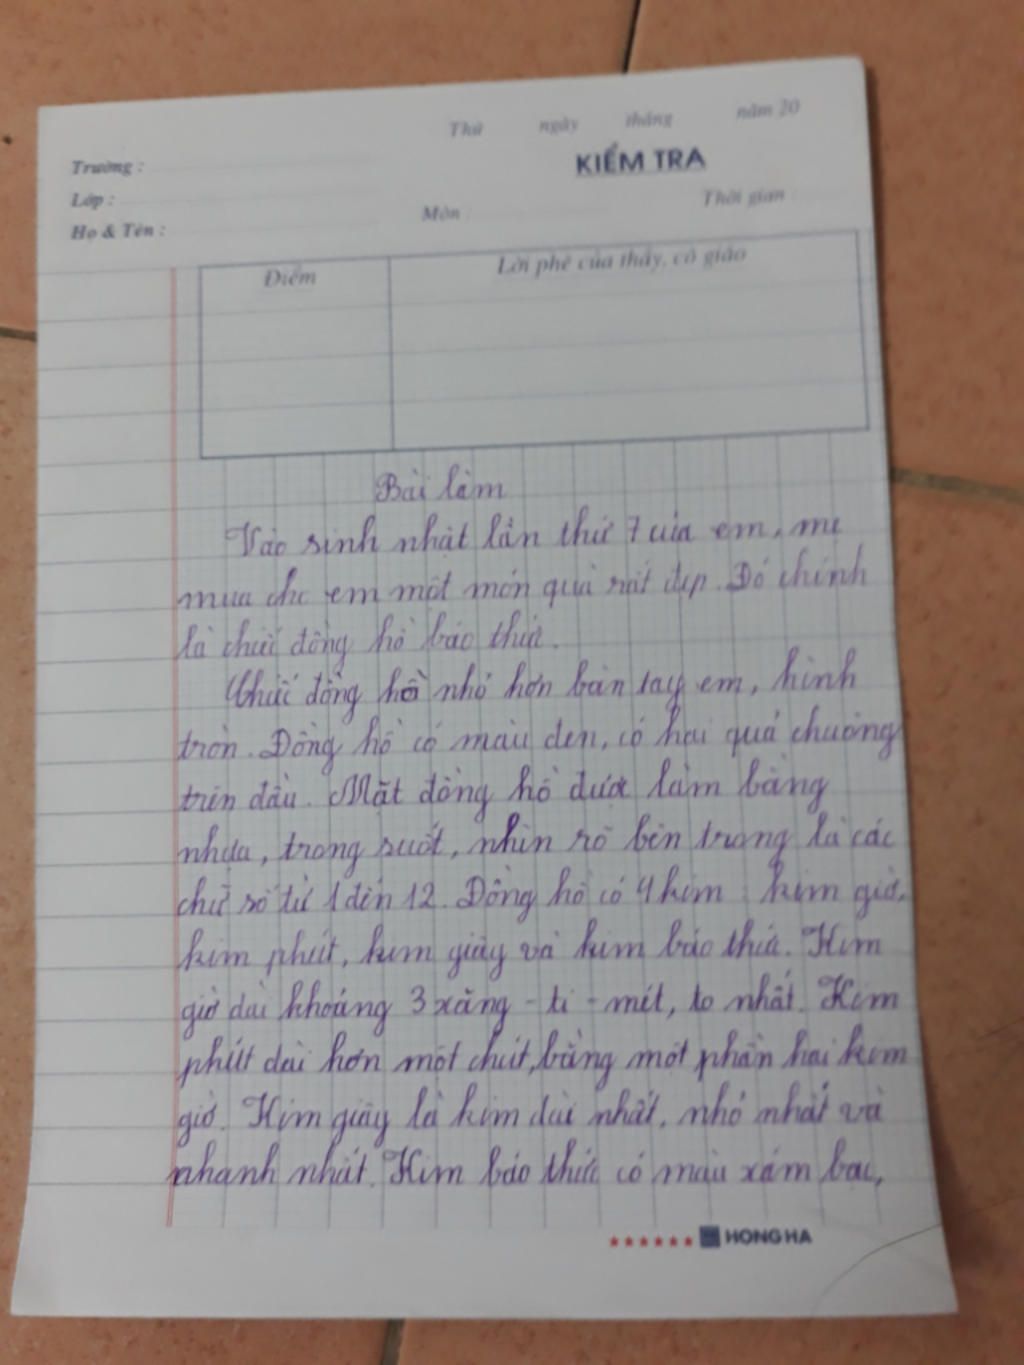 Thứ ngày tháng năm 20
Trường :
KIỂM TRA
Lớp :
Môn : Thời gian :
Họ & Tên :
Điểm
Lời phê của thầy, cô giáo
Bài làm
Vào sinh nhật lần thứ 7 của em, mẹ
mua cho em một món quà rất đẹp. Đó chính
là chiếc đồng hồ báo thức.
Chiếc đồng hồ nhỏ hơn bàn tay em, hình
tròn. Đồng hồ có màu đen, có hai quả chuông
trên đầu. Mặt đồng hồ được làm bằng
nhựa, trong suốt, nhìn rõ bên trong là các
chữ số từ 1 đến 12. Đồng hồ có 4 kim : kim giờ,
kim phút, kim giây và kim báo thức. Kim
giờ dài khoảng 3 xăng - ti - mét, to nhất. Kim
phút dài hơn một chút, bằng một phần hai kim
giờ. Kim giây là kim dài nhất, nhỏ nhất và
nhanh nhất. Kim báo thức có màu xám bạc,
HONG HA